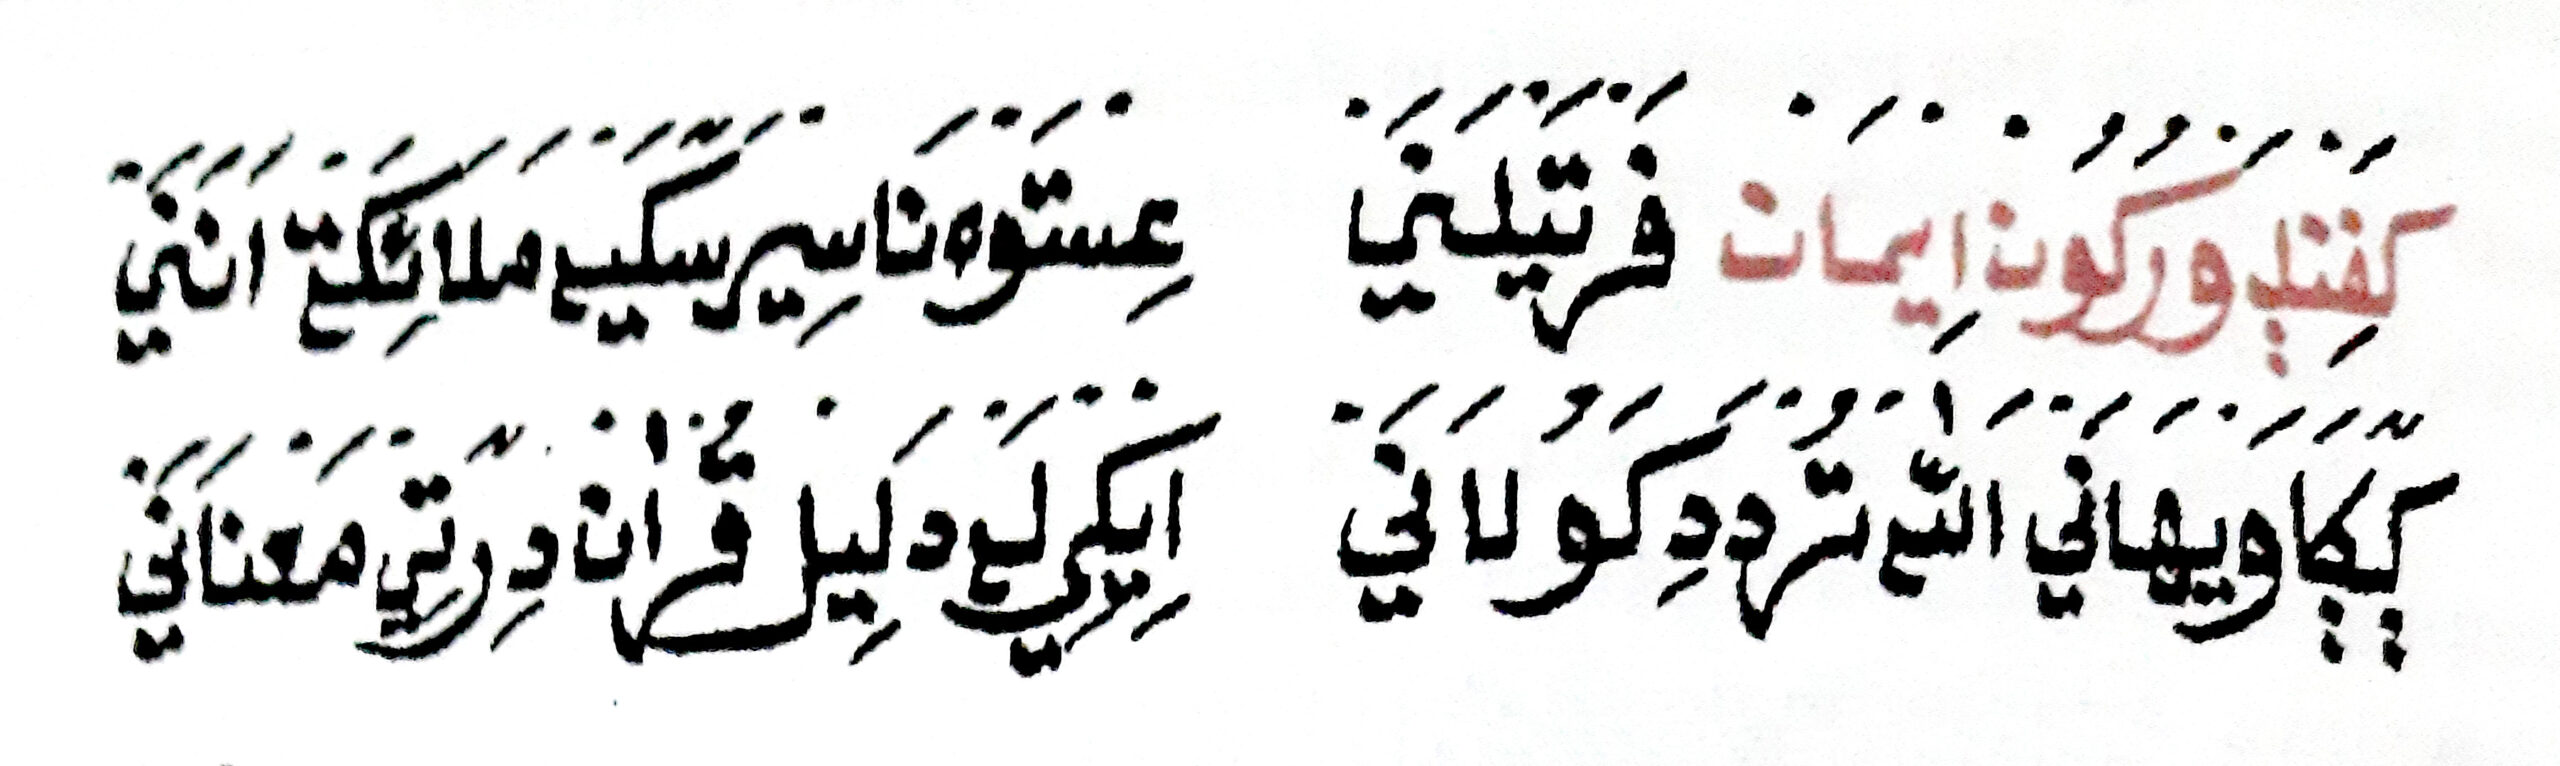 كَفِتَلٜ وَرُكُونْ اِيمَانْ فَرْتَيْلَنَيْ عِسْتَوْهْ نَاسِيرْ سَكَيعْ مَلَائِكَةْ اَنَنَيْ
كٜكٜاَوَيْهَانَيْ اللّٰه تَرْدُدِ كَوُلَانَيْ اِيْكِرِيْ لَعْ دَلِيلْ قُرْاٰنْ دِرَتِيْ مَعْنَانَيْ